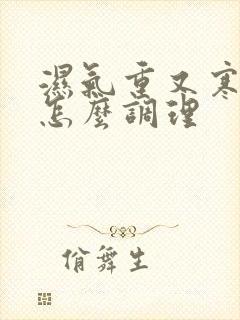 濕氣重又寒
怎麼調理
俏舞生